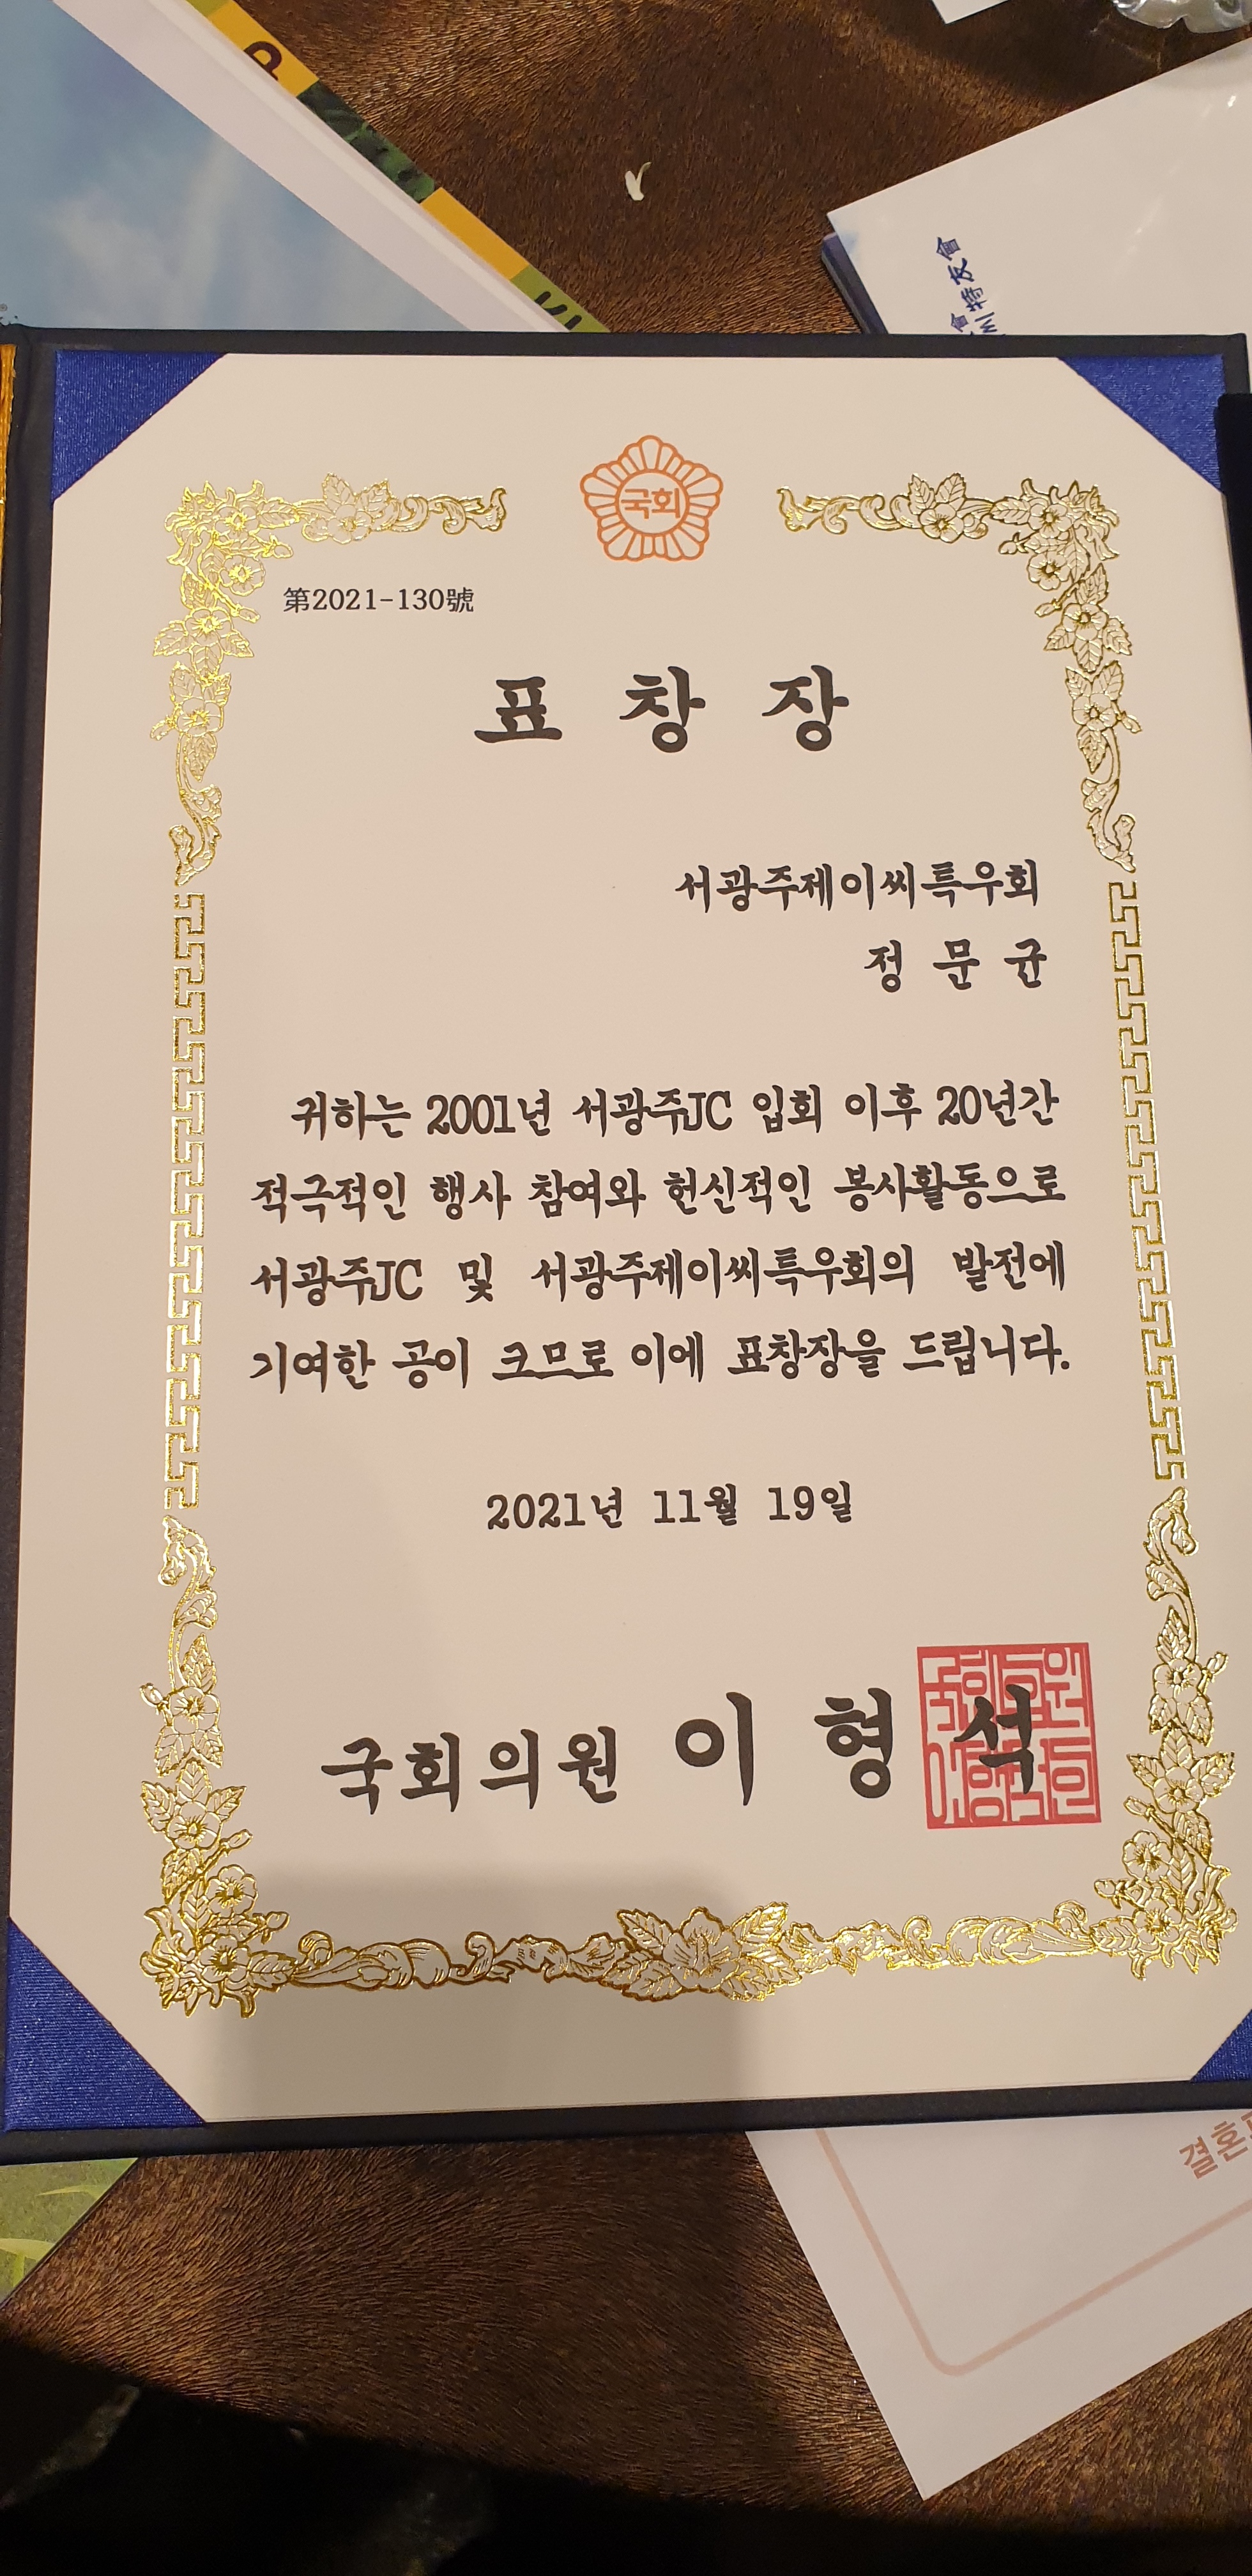 會
會特友會
국회
第2021-130號
표 창 장
서광주제이씨특우회
정 문 균
귀하는 2001년 서광주JC 입회 이후 20년간
적극적인 행사 참여와 헌신적인 봉사활동으로
서광주JC 및 서광주제이씨특우회의 발전에
기여한 공이 크므로 이에 표창장을 드립니다.
2021년 11월 19일
국회의원 이 형 석
국회의원
이형석인
결혼